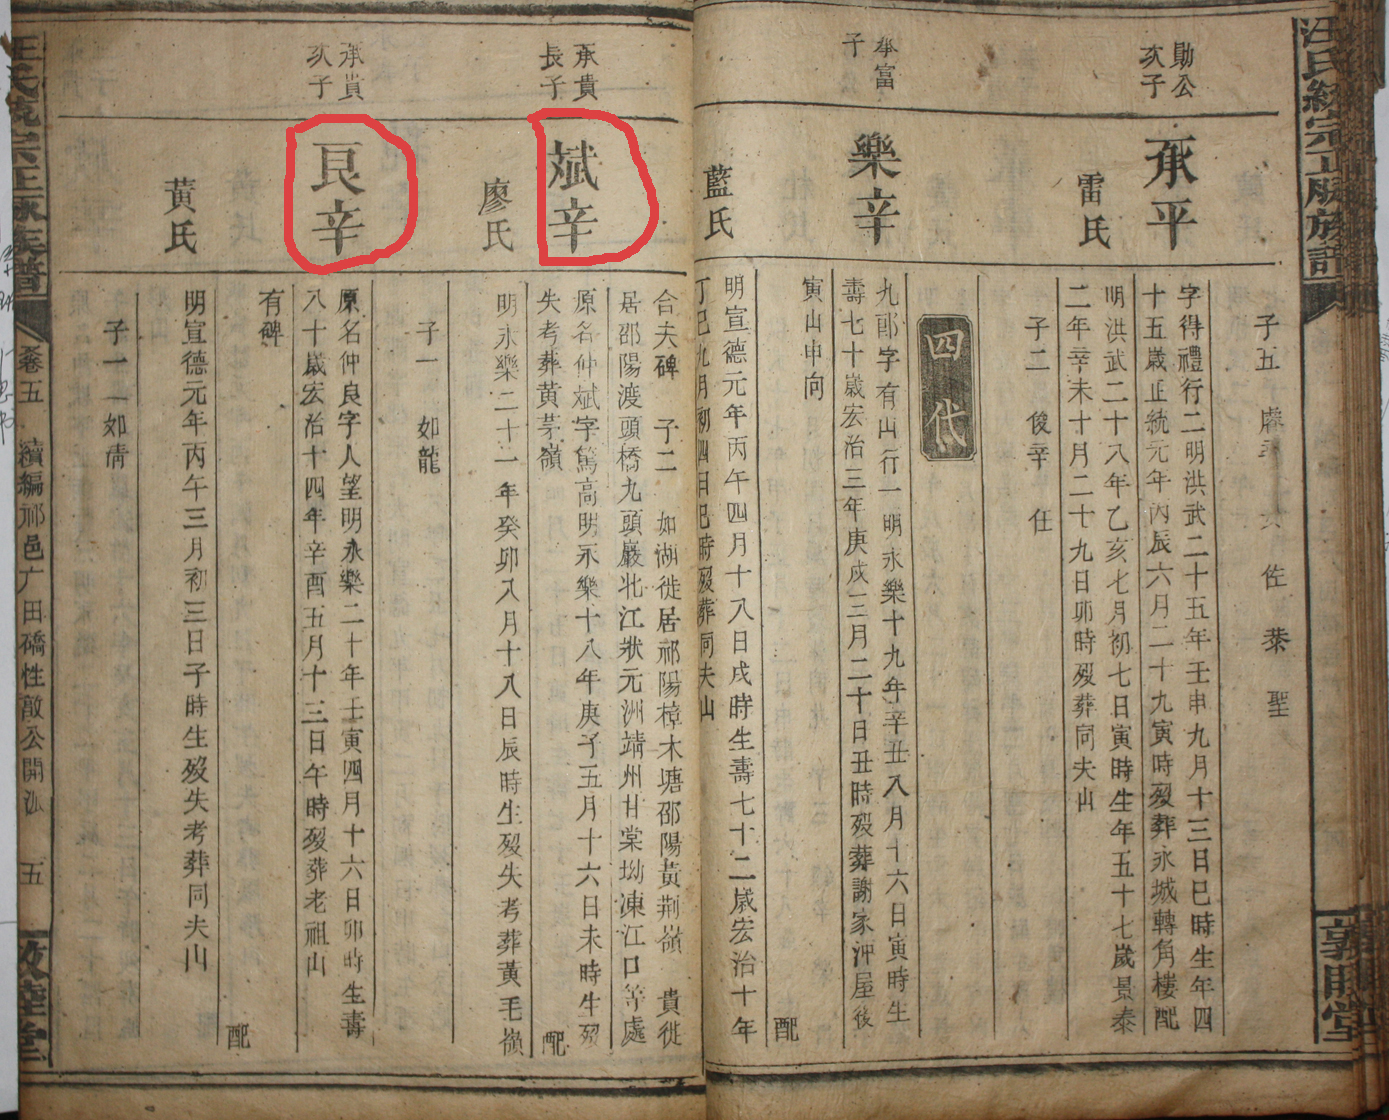 汪氏統宗正脉族譜
敦睦堂
子五
佐
棻
聖
勛公
次子
承平
字得禮行二明洪武二十五年壬申九月十三日巳時生年四
十五歲正統元年丙辰六月二十九寅時歿葬永城轉角樓配
雷氏
明洪武二十八年乙亥七月初七日寅時生年五十七歲景泰
二年辛未十月二十九日卯時歿葬同夫山
子二 俊辛 任
四代
承富
子
樂辛
九郎字有山行一明永樂十九年辛丑八月十六日寅時生
壽七十歲宏治三年庚戌三月二十日丑時歿葬謝家沖屋後
寅山申向
配
藍氏
明宣德元年丙午四月十八日戌時生壽七十二歲宏治十年
丁巳九月初四日巳時歿葬同夫山
合夫碑 子二 如湖徙居祁陽樟木塘邵陽黃荆嶺 貴徙
居邵陽渡頭橋九頭巖北江狀元洲靖州甘棠坳凍江口等處
承貴
長子
斌辛
原名仲斌字篤高明永樂十八年庚子五月十六日未時生歿
失考葬黃茅嶺
配
廖氏
明永樂二十一年癸卯八月十八日辰時生歿失考葬黃毛嶺
子一 如龍
承貴
次子
良辛
原名仲良字人望明永樂二十年壬寅四月十六日卯時生壽
八十歲宏治十四年辛酉五月十三日午時歿葬老祖山
有碑
配
黃氏
明宣德元年丙午三月初三日子時生歿失考葬同夫山
子一 如倩
汪氏統宗正脉族譜
卷五 續編祁邑广田礄性敵公開派 五
敦睦堂